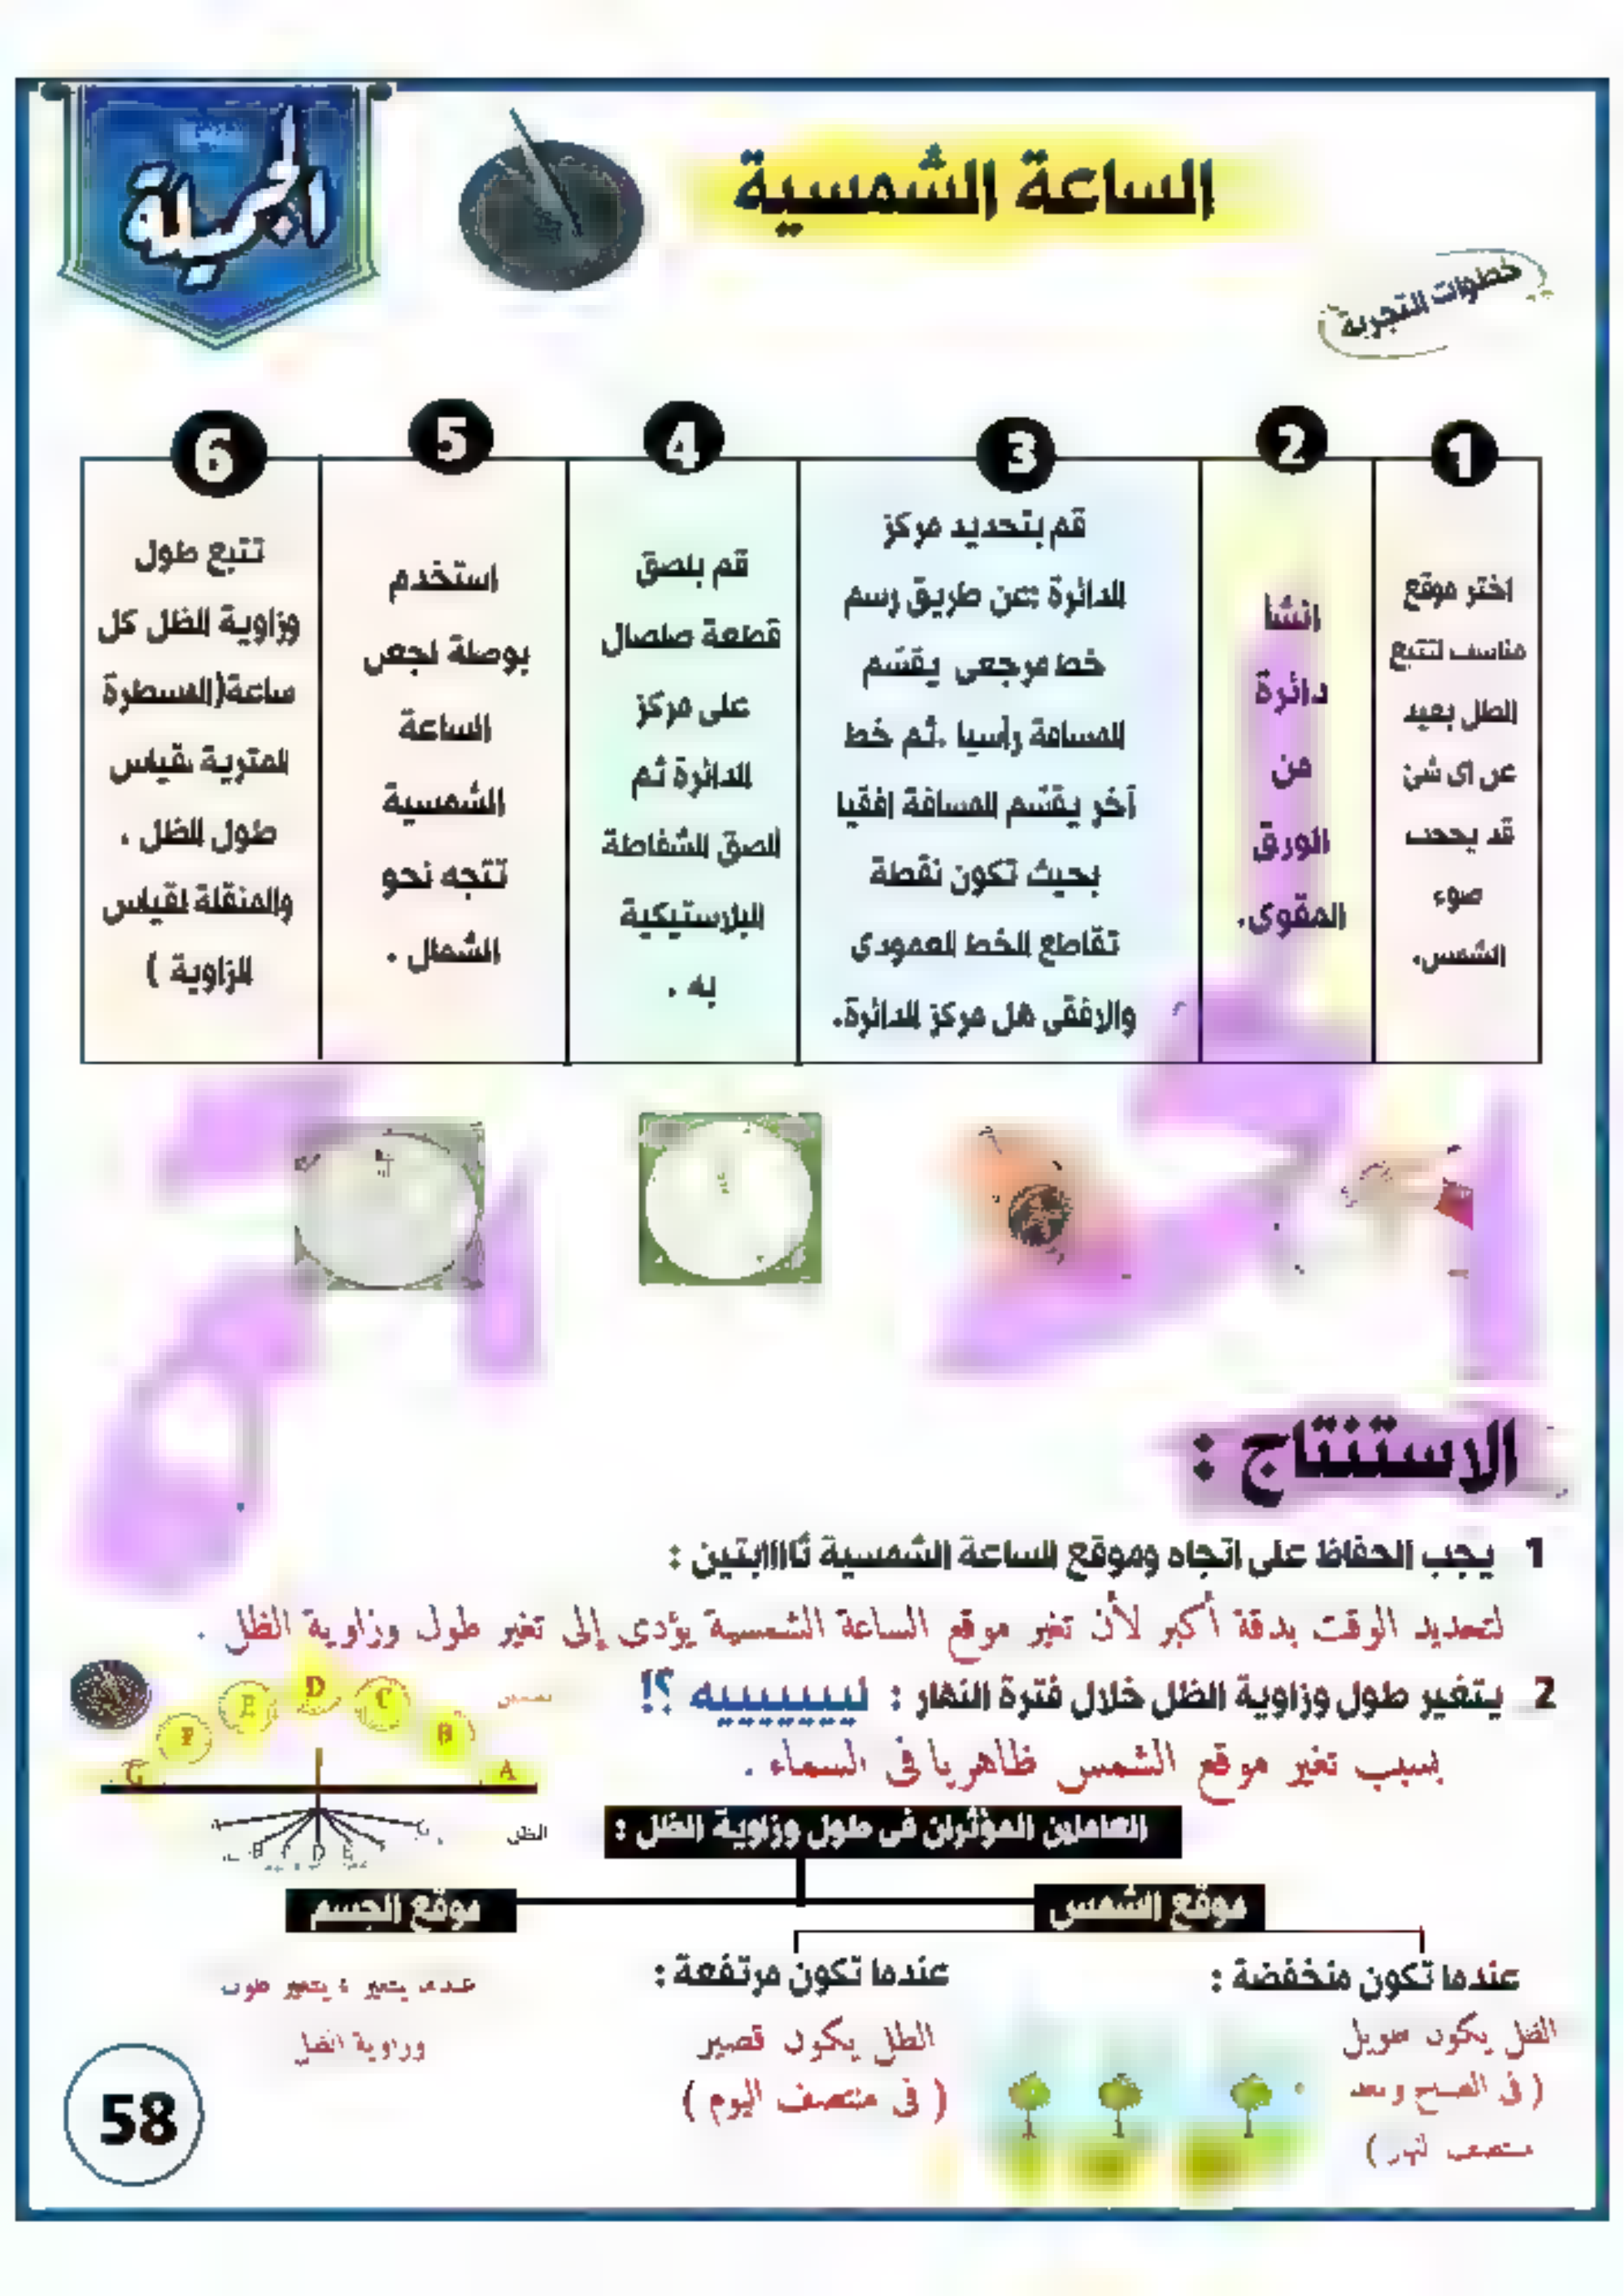 الجميلة
الساعة الشمسية
خطوات التجربة
1
اختر موقع
مناسب لتتبع
الظل بعيد
عن اى شئ
قد يحجب
ضوء
الشمس.
2
انشأ
دائرة
من
الورق
المقوى.
3
قم بتحديد مركز
الدائرة :عن طريق رسم
خط مرجعى يقسم
المسافة رأسيا .ثم خط
آخر يقسم المسافة افقيا
بحيث تكون نقطة
تقاطع الخط العمودى
والافقى هل مركز الدائرة.
4
قم بلصق
قطعة صلصال
على مركز
الدائرة ثم
الصق الشفاطة
البلاستيكية
به .
5
استخدم
بوصلة لجعل
الساعة
الشمسية
تتجه نحو
الشمال .
6
تتبع طول
وزاوية الظل كل
ساعة(المسطرة
المترية لقياس
طول الظل .
والمنقلة لقياس
الزاوية )
الاستنتاج :
1 يجب الحفاظ على اتجاه وموقع الساعة الشمسية ثااااابتين :
لتحديد الوقت بدقة أكبر لأن تغير موقع الساعة الشمسية يؤدى إلى تغير طول وزاوية الظل .
2 يتغير طول وزاوية الظل خلال فترة النهار : ليييييييه ؟!
بسبب تغير موقع الشمس ظاهريا فى السماء .
A B C D E F G
الظل
العاملين المؤثران فى طول وزاوية الظل :
موقع الشمس
موقع الجسم
عندما تكون منخفضة :
الظل يكون طويل
( فى الصبح وبعد
منتصف النهار )
عندما تكون مرتفعة :
الظل يكون قصير
( فى منتصف اليوم )
عندما يتغير ؛ يتغير طول
وزاوية الظل
58